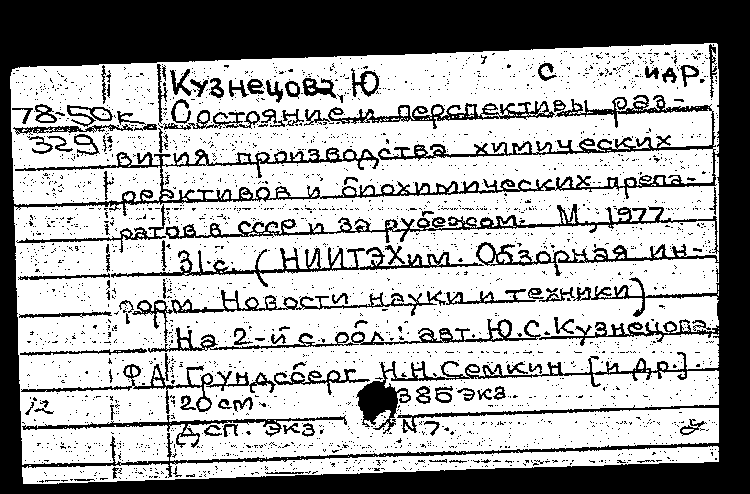 Кузнецова, Ю С и др.
78-50к Состояние и перспективы раз-
329
вития производства химических
реактивов и биохимических препа-
ратов в СССР и за рубежом. М., 1977.
31 с. (НИИТЭХим. Обзорная ин-
форм. Новости науки и техники)
На 2-й с. обл.: авт. Ю.С.Кузнецова,
Ф.А. Грундсберг, Н.Н.Семкин [и др.].
12 20 см. 385 экз.
ДСП. Экз. N 7.